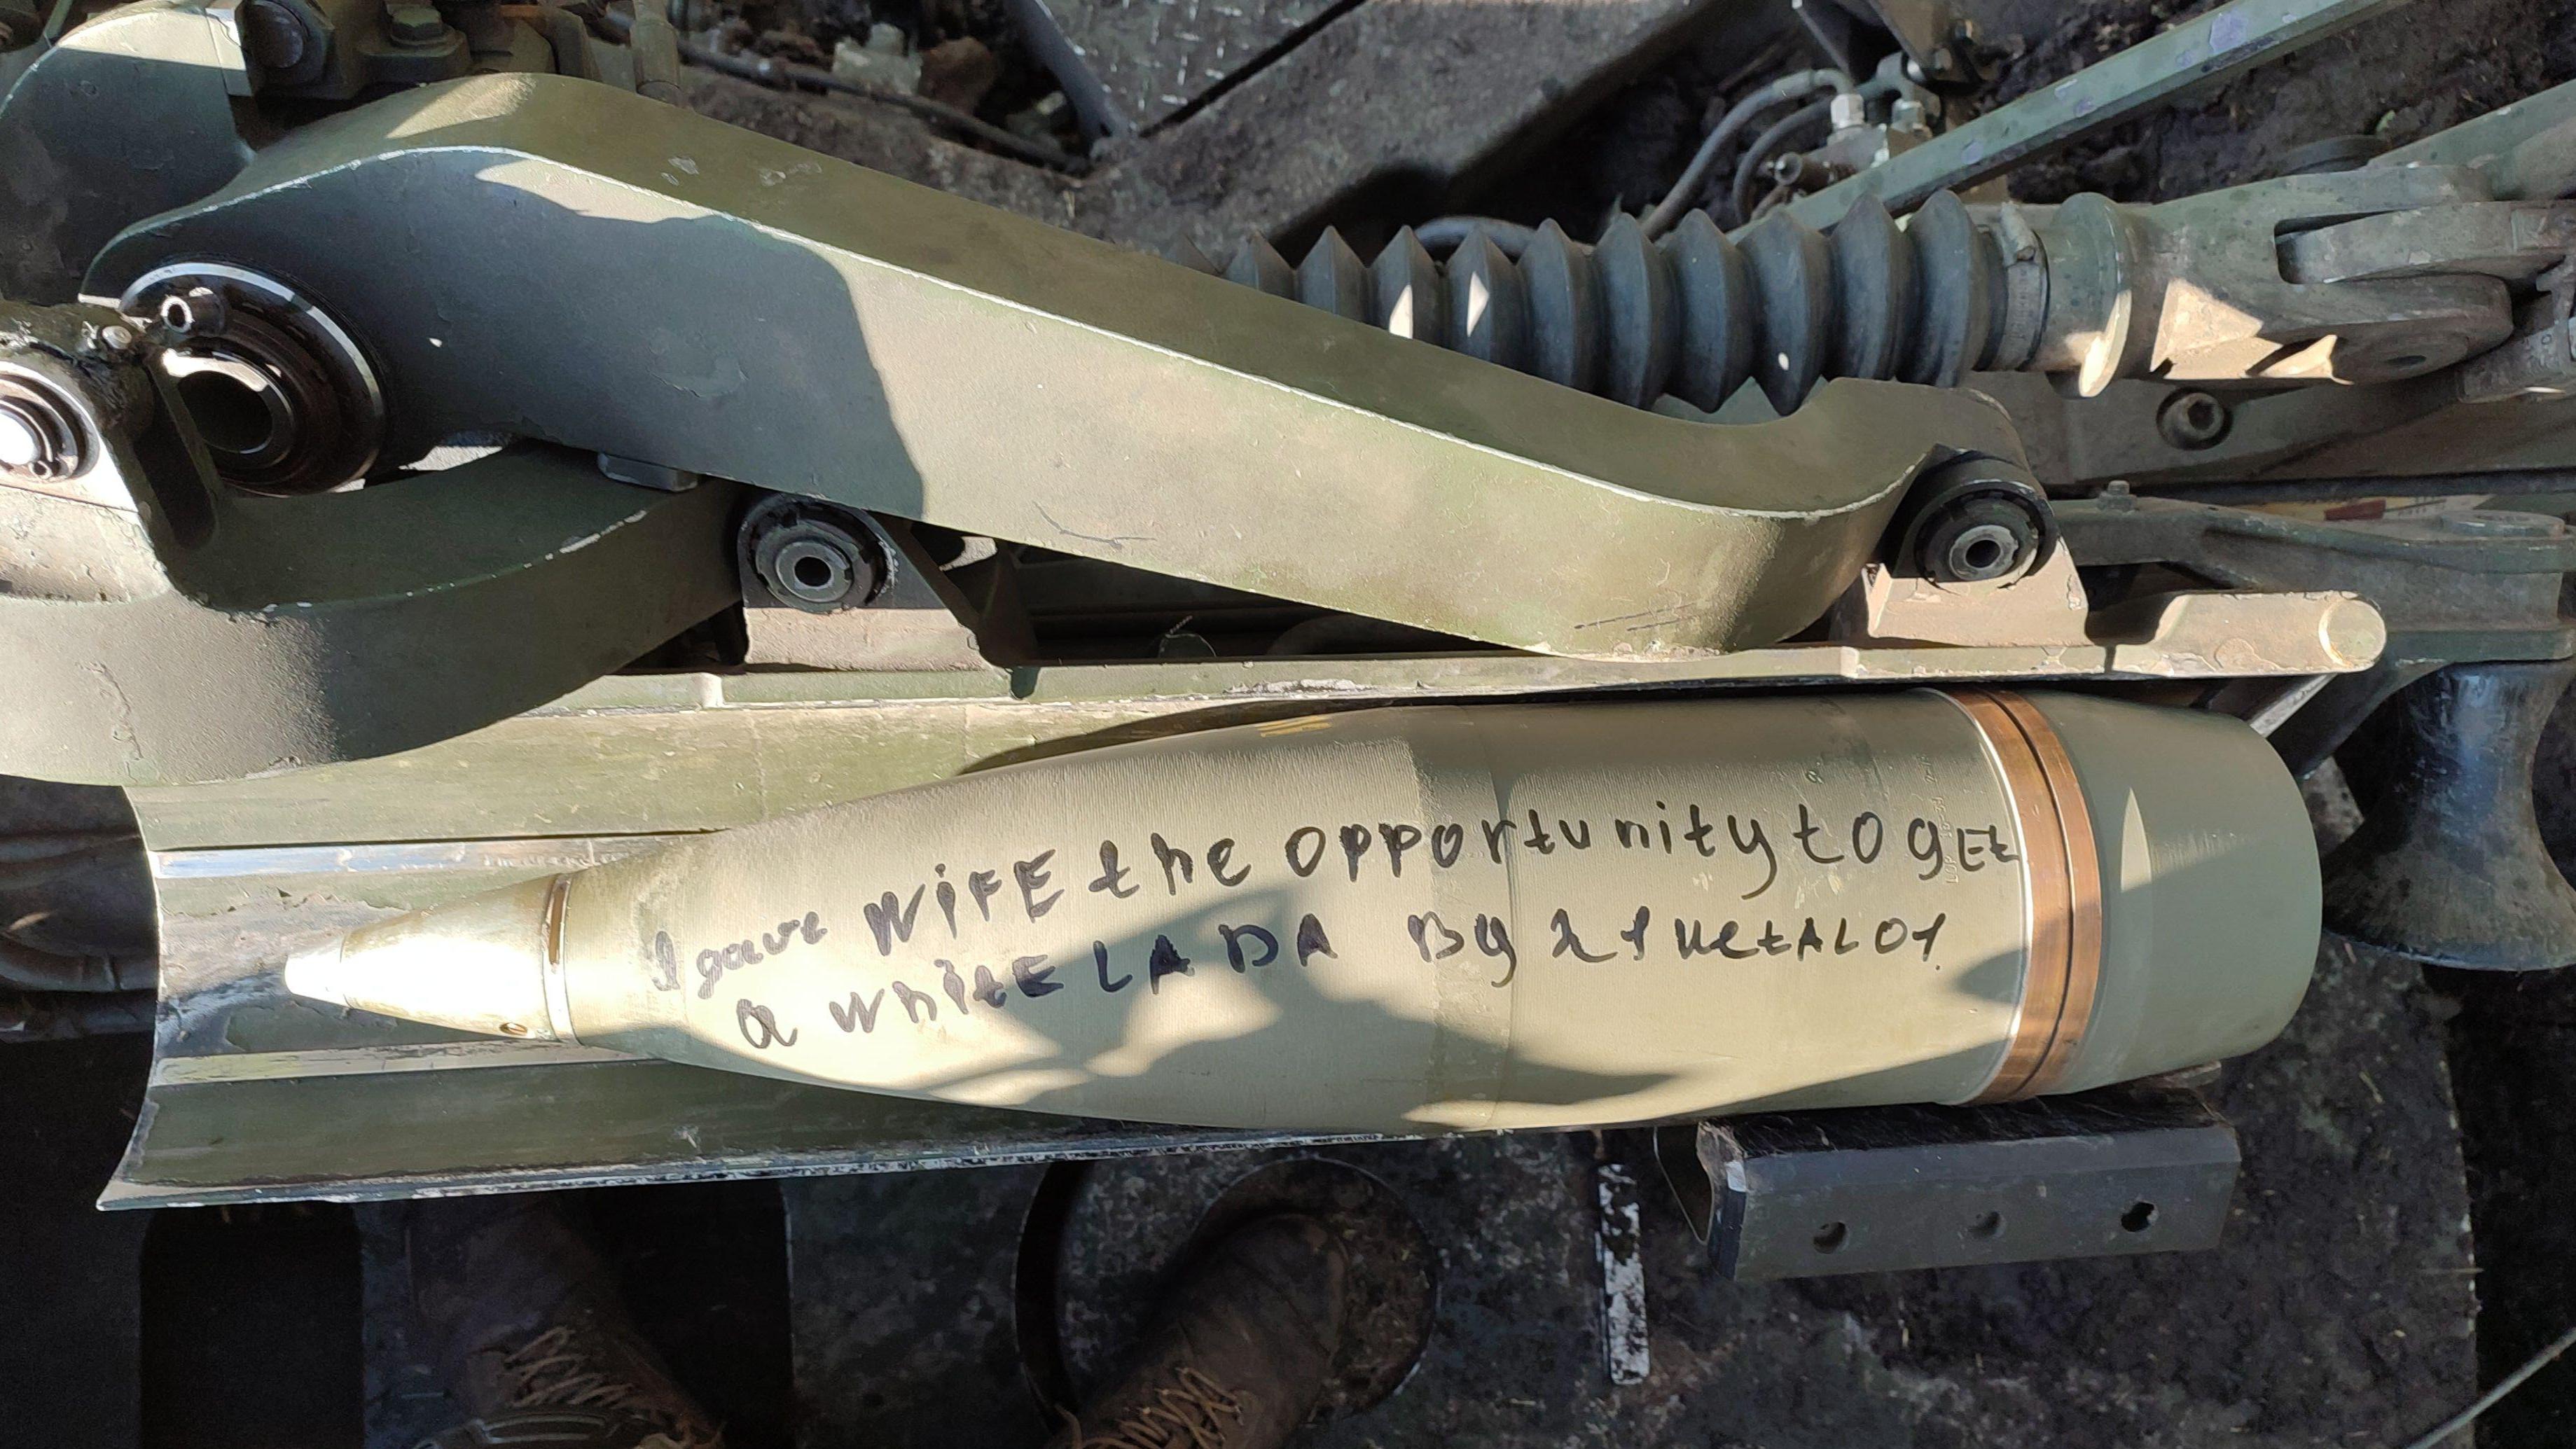 I gave WiFE the opportunity to gEt
a whitE LADA By 21 metALO1